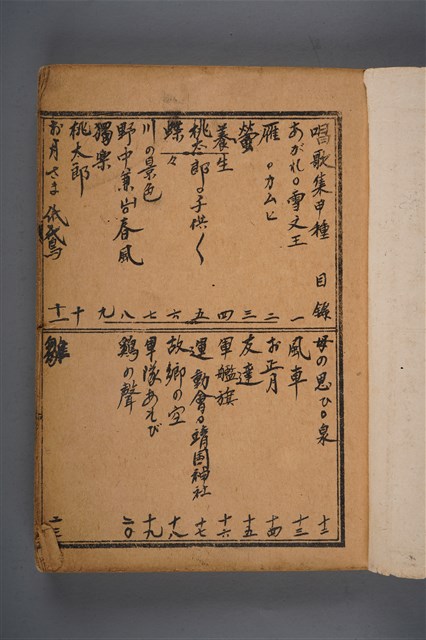 唱歌集甲種 目錄
あがれ〇雪文王 一
雁〇カムヒ 二
螢 三
養生 四
桃太郎〇子供〱 五
蝶々 六
川の景色 七
野中兼山春風 八
獨樂 九
桃太郎 十
お月さま 十一
母の思ひ〇泉 十二
風車 十三
お正月 十四
友達 十五
軍艦旗 十六
運動會〇靖国神社 十七
故鄉の空 十八
軍隊あそび 十九
鷄の聲 二〇
雛